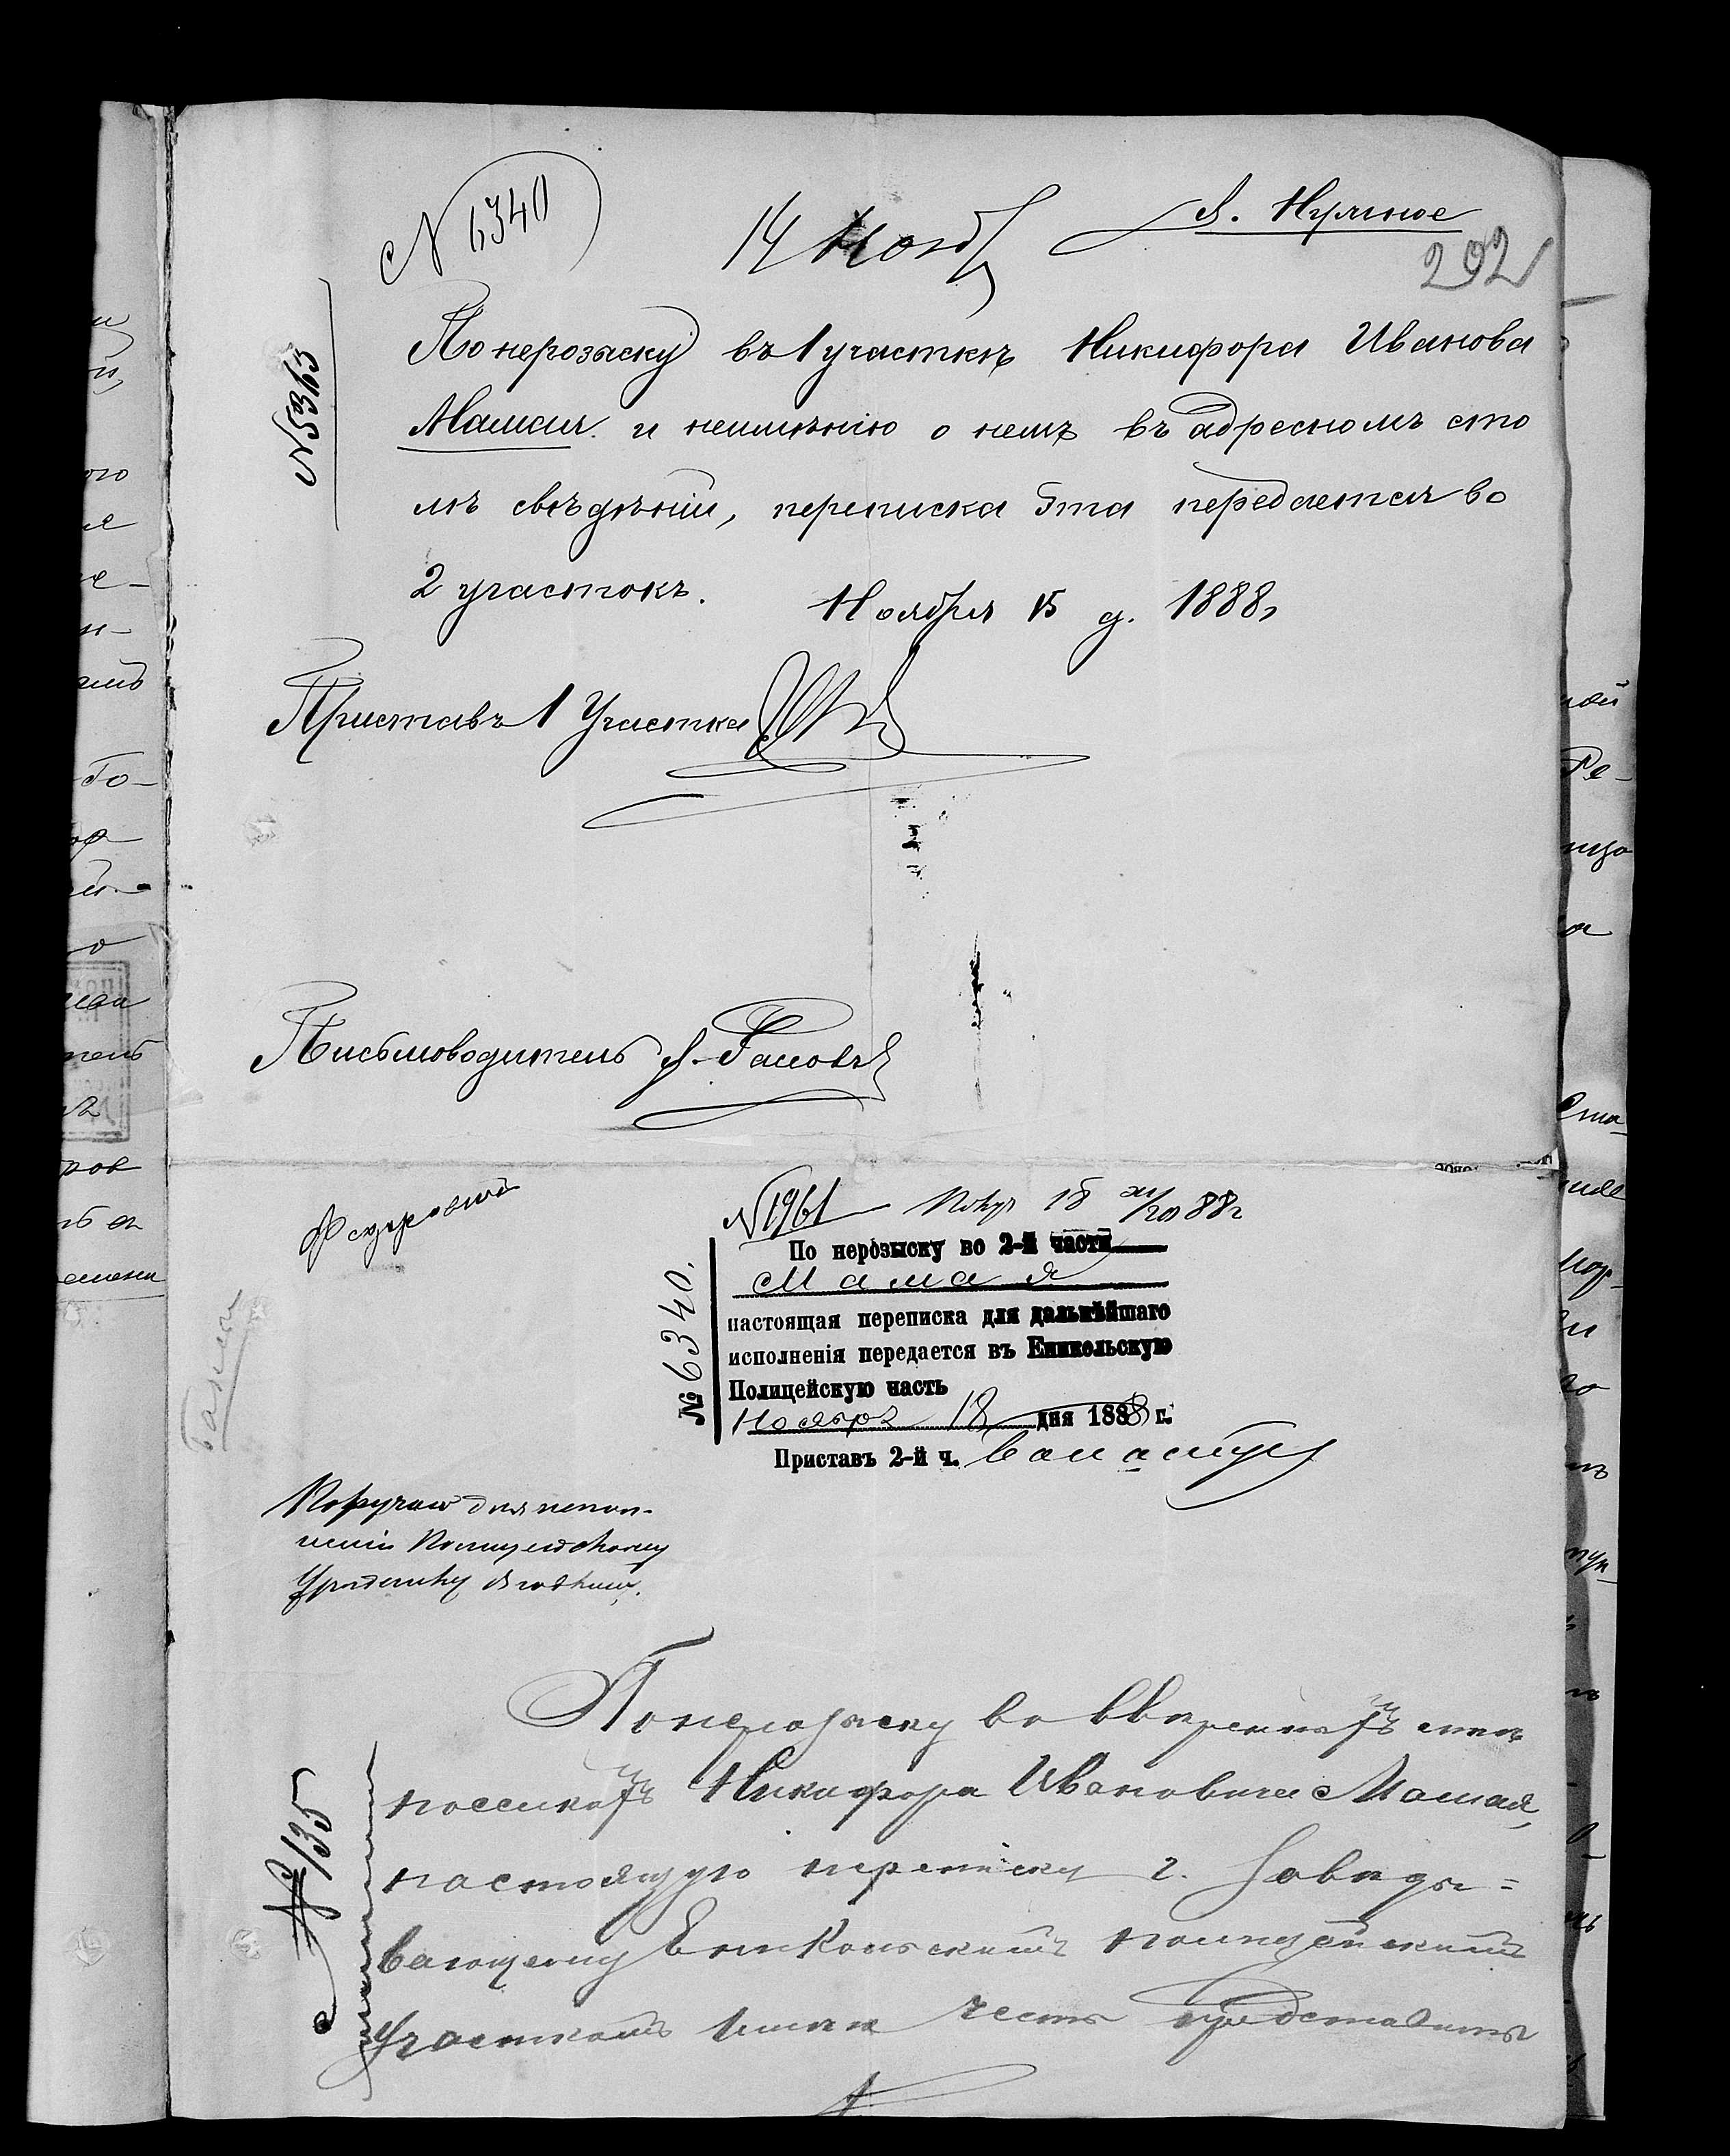 N 6340
14 Нояб
292
N 5363
По нерозыску въ 1 участкѣ Никифора Иванова
Мамая и неимѣнію о немъ въ адресномъ сто
лѣ свѣдѣній, переписка эта передается во
2 участокъ.
Ноября 15 д. 1888 г
Приставъ 1 Участка
Письмоводитель
N 1961 Получ 18 XI/20 88 г
По нерозыску во 2-й части
Мамая
№ 6340.
настоящая переписка для дальнѣйшаго
исполненія передается въ Еникольскую
Полицейскую часть
Ноября 18 дня 1888 г.
Приставъ 2-й ч.
Поручаю для испол-
ненія
Уряднику
По нерозыску во ввѣренныхъ мнѣ
поселкахъ Никифора Ивановича Мамая,
настоящую переписку г. Завѣды=
вающему Еникольскимъ полицейскимъ
Участкомъ имѣю честь представить
№ 135